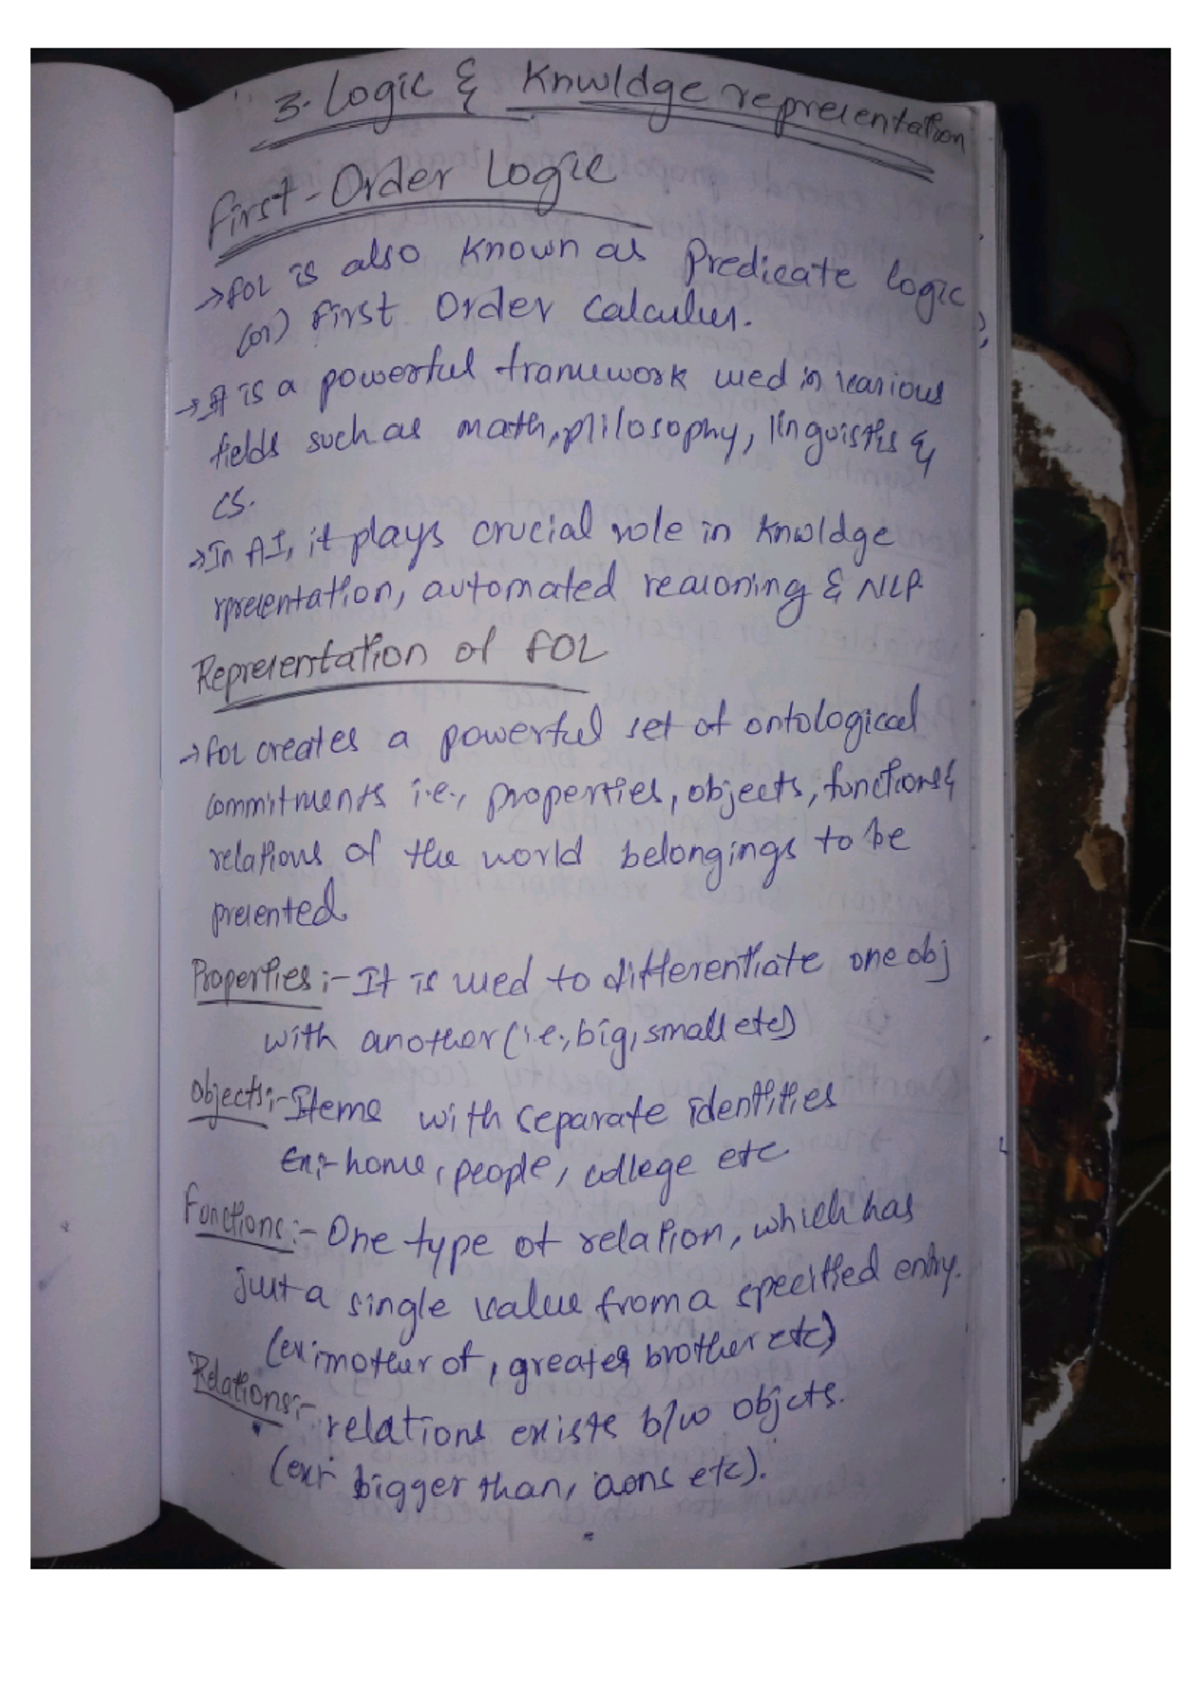 3. Logic & Knwldge representation
First-Order Logic
→ FOL is also known as Predicate logic
(or) First Order Calculus.
→ It is a powerful framework used in various
fields such as math, philosophy, linguistics &
CS.
→ In AI, it plays crucial role in knwldge
rpresentation, automated reasoning & NLP
Representation of FOL
→ FOL creates a powerful set of ontological
commitments i.e., properties, objects, functions &
relations of the world belongings to be
presented.
Properties :- It is used to differentiate one obj
with another (i.e., big, small etc)
Objects :- Items with separate identities
Ex :- home, people, college etc
Functions :- One type of relation, which has
just a single value from a specified entry.
(ex: mother of, greater brother etc)
Relations :- relations exists b/w objcts.
(ex: bigger than, etc).